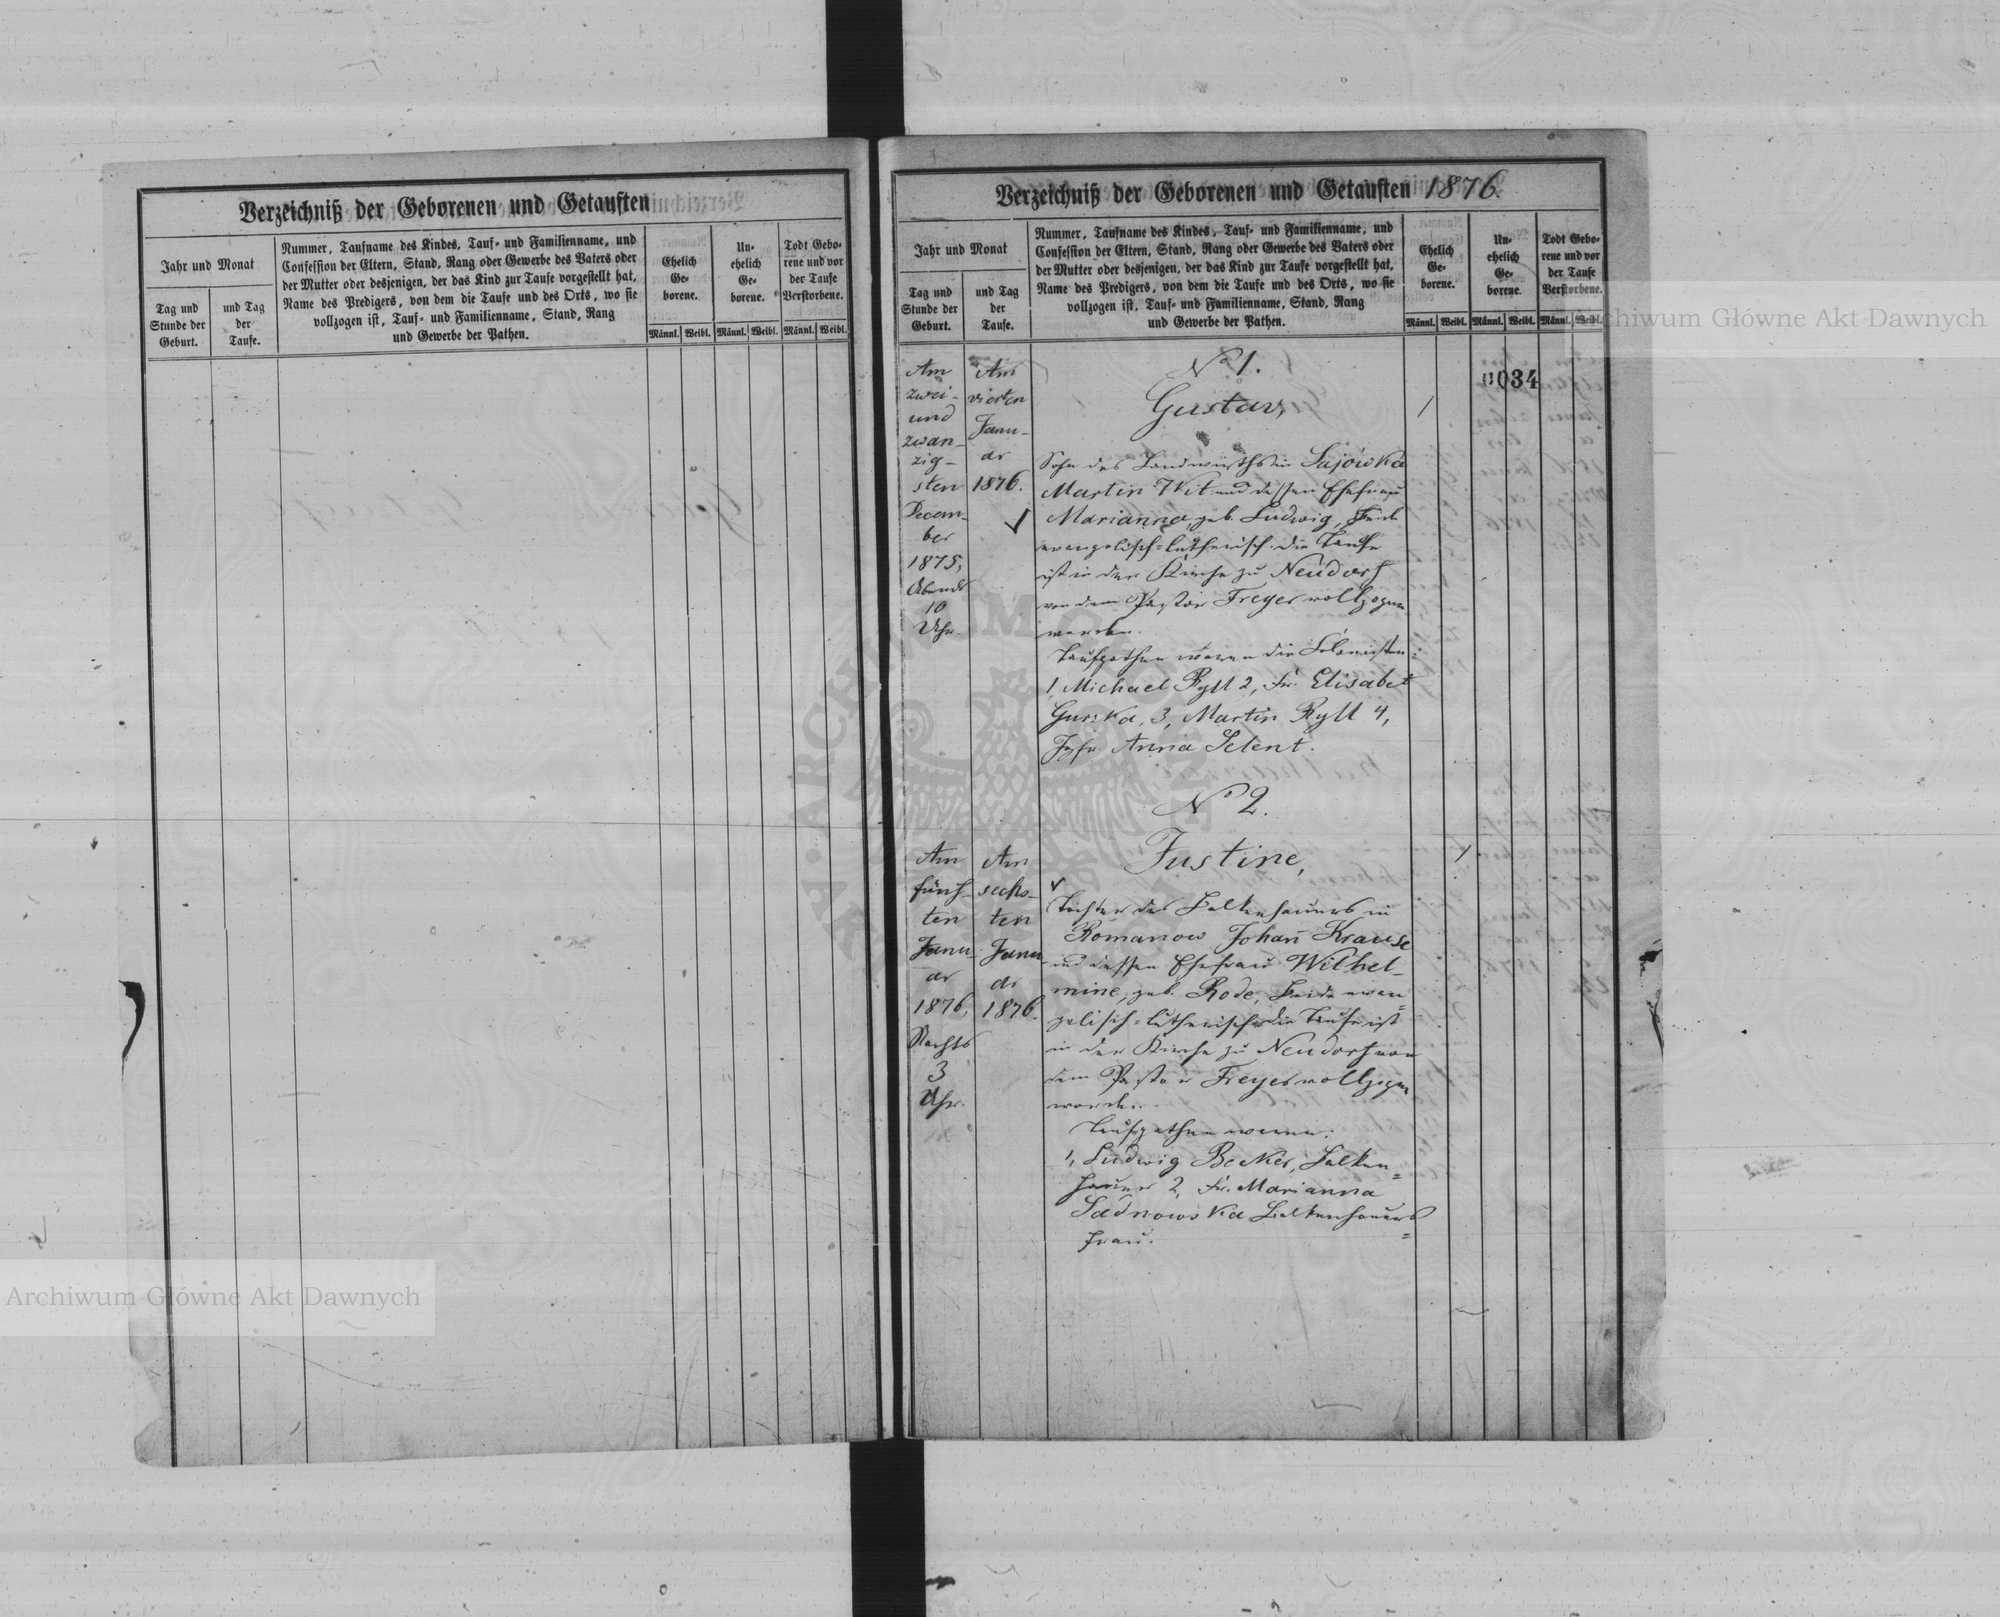 Verzeichniß der Geborenen und Getauften
Jahr und Monat
Tag und
Stunde der
Geburt.
und Tag
der
Taufe.
Nummer, Taufname des Kindes, Tauf- und Familienname, und
Confession der Eltern, Stand, Rang oder Gewerbe des Vaters oder
der Mutter oder desjenigen, der das Kind zur Taufe vorgestellt hat,
Name des Predigers, von dem die Taufe und des Orts, wo sie
vollzogen ist, Tauf- und Familienname, Stand, Rang
und Gewerbe der Pathen.
Ehelich
Ge-
borene.
Un-
ehelich
Ge-
borene.
Todt Gebo-
rene und vor
der Taufe
Verstorbene.
Männl. Weibl. Männl. Weibl. Männl. Weibl.
Verzeichniß der Geborenen und Getauften 1876.
Jahr und Monat
Tag und
Stunde der
Geburt.
und Tag
der
Taufe.
Nummer, Taufname des Kindes, Tauf- und Familienname, und
Confession der Eltern, Stand, Rang oder Gewerbe des Vaters oder
der Mutter oder desjenigen, der das Kind zur Taufe vorgestellt hat,
Name des Predigers, von dem die Taufe und des Orts, wo sie
vollzogen ist, Tauf- und Familienname, Stand, Rang
und Gewerbe der Pathen.
Ehelich
Ge-
borene.
Un-
ehelich
Ge-
borene.
Todt Gebo-
rene und vor
der Taufe
Verstorbene.
Männl. Weibl. Männl. Weibl. Männl. Weibl.
034
Am
zwei-
und
zwan-
zig-
sten
Decem-
ber
1875,
Abends
10
Uhr.
Am
vierten
Janu-
ar
1876.
No 1.
Gustav,
Sohn des Landwirths in Sajówka
Martin Wit und dessen Ehefrau
Marianna, geb. Ludwig, beide
evangelisch=lutherisch. die Taufe
ist in der Kirche zu Neudorf
von dem Pastor Freyer vollzogen
worden.
Taufpathen waren die Colonisten:
1, Michael Ryll 2, Fr. Elisabet
Gurska, 3, Martin Ryll 4,
Jgfr. Anna Selent.
No 2.
Am
fünf-
ten
Janu-
ar
1876,
Nachts
3
Uhr.
Am
sechs-
ten
Janu-
ar
1876.
Justine,
Tochter des Balkenhauers in
Romanow Johan̄ Krause
und dessen Ehefrau Wilhel-
mine, geb. Rode, beide evan=
gelisch=lutherisch. die Taufe ist
in der Kirche zu Neudorf von
dem Pastor Freyer vollzogen
worden.
Taufpathen waren:
1, Ludwig Becker, Balken=
hauer 2, Fr. Marianna
Sadnowska Balkenhauers=
frau.
Archiwum Główne Akt Dawnych
Archiwum Główne Akt Dawnych